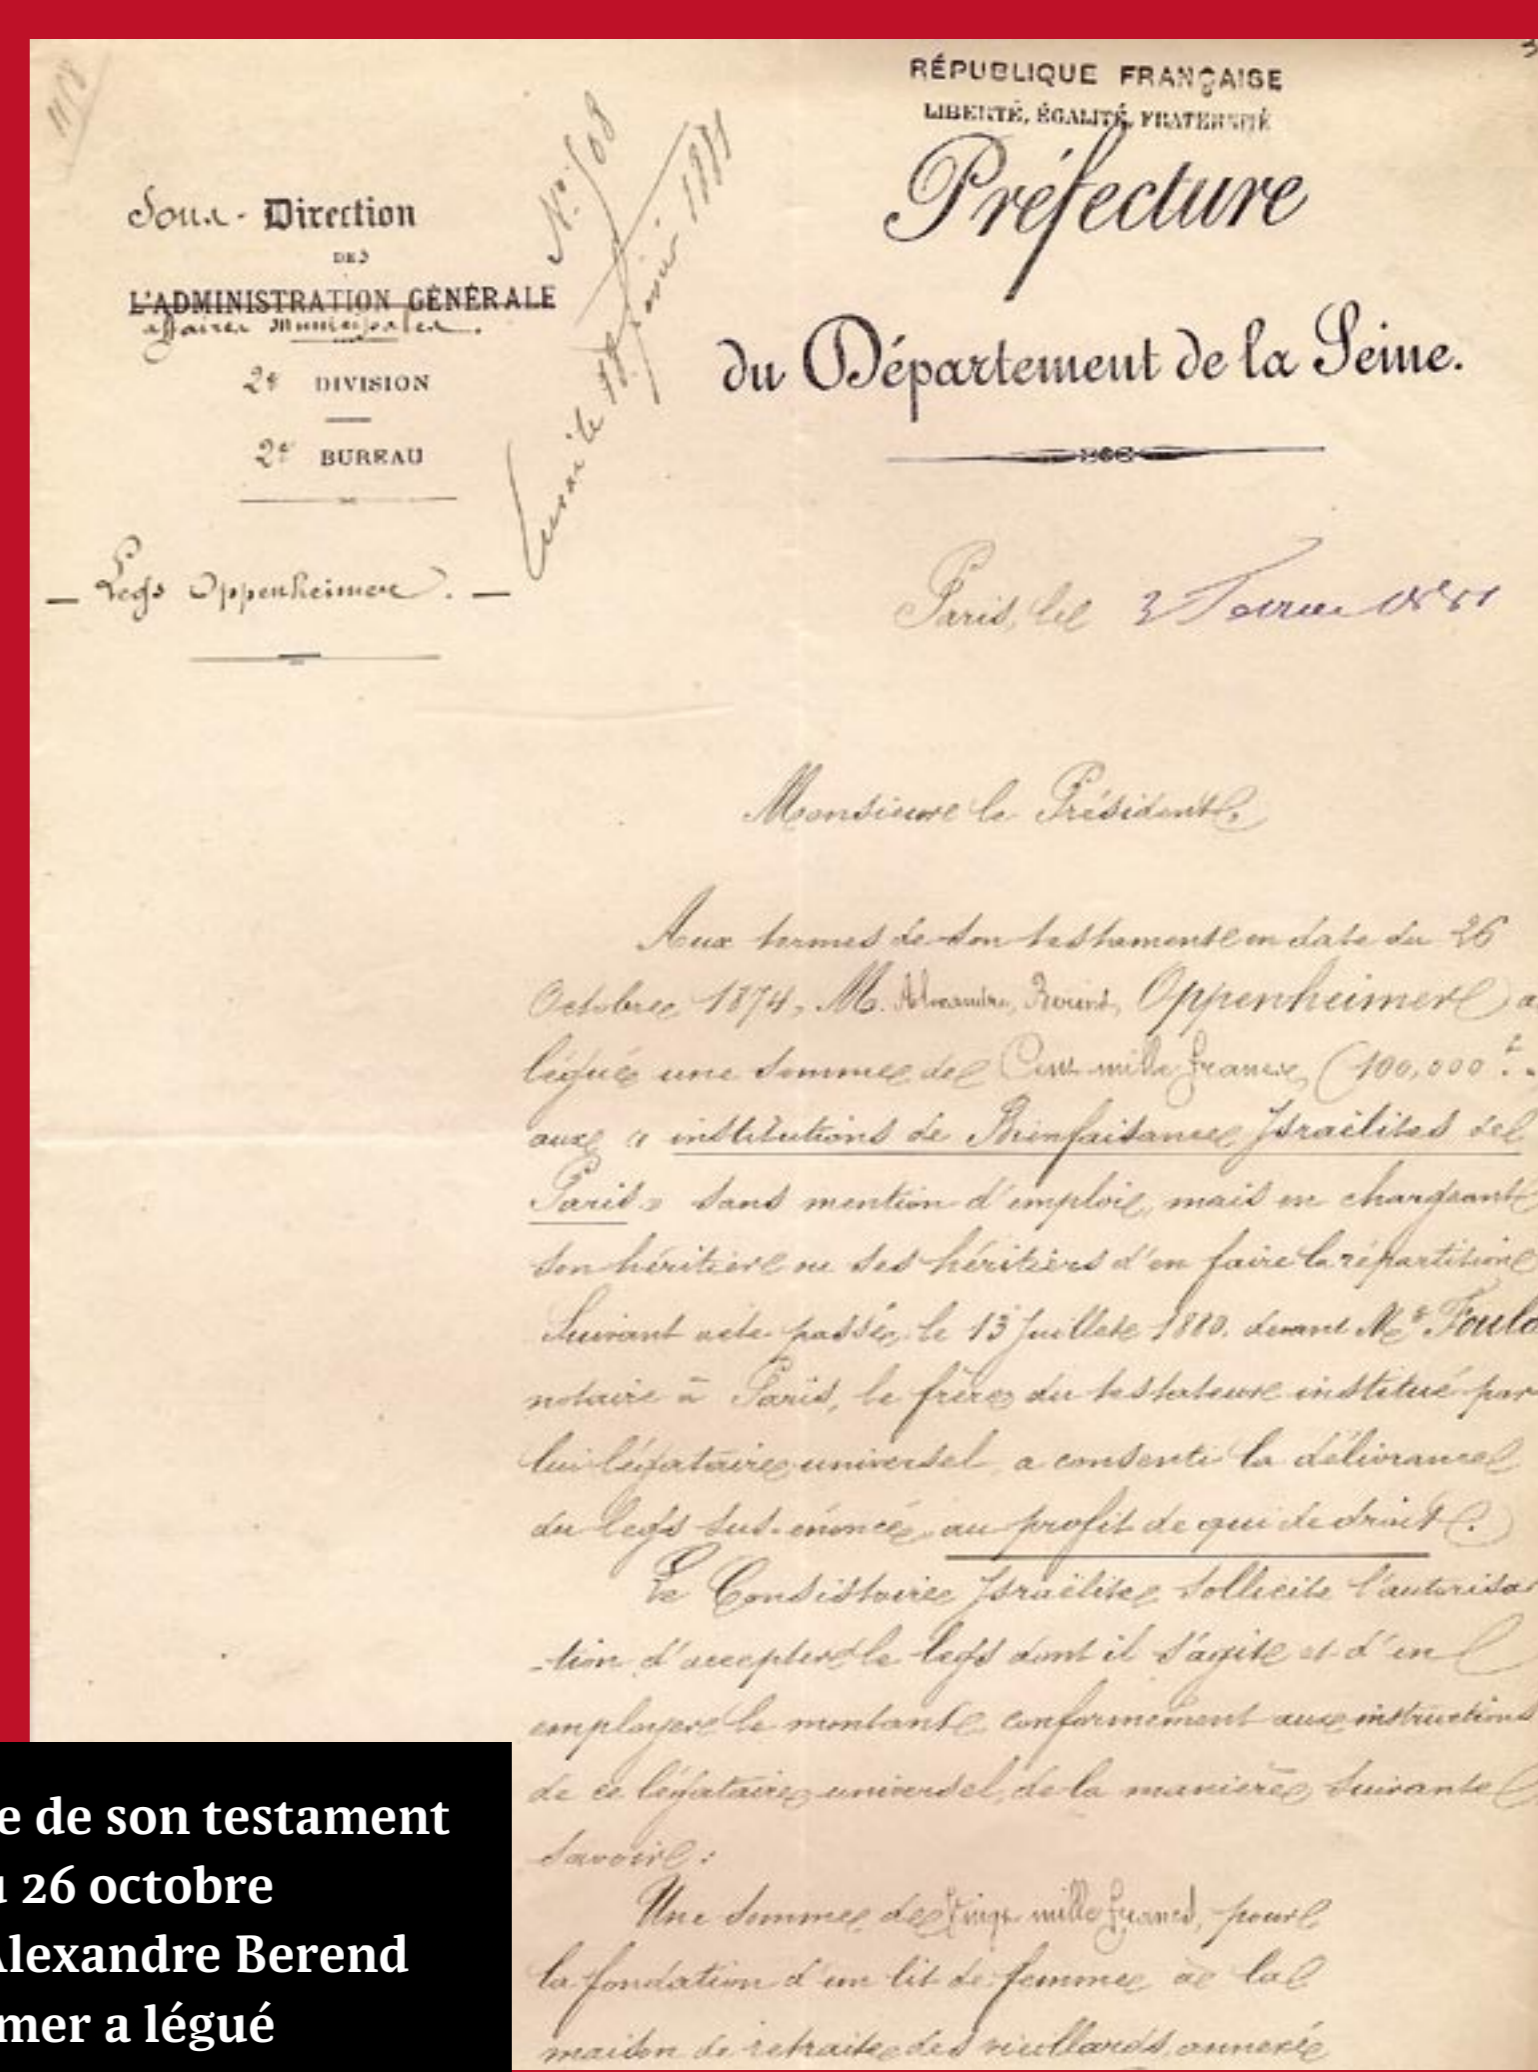 RÉPUBLIQUE FRANÇAISE
LIBERTÉ, ÉGALITÉ, FRATERNITÉ
Préfecture
du Département de la Seine.
Sous-Direction
DES
L'ADMINISTRATION GÉNÉRALE
affaires Municipales.
2e DIVISION
2e BUREAU
_ Legs Oppenheimer. _
No. 108
le 18 1881
Paris, le 3 1881
Monsieur le Président,
Aux termes de son testament en date du 26
Octobre 1874, M. Alexandre, Berend, Oppenheimer a
légué une somme de Cent mille francs (100,000 f.
aux « institutions de Bienfaisance Israélites de
Paris » sans mention d'emploi, mais en chargeant
son héritier ou ses héritiers d'en faire la répartition
Suivant acte passé, le 13 Juillet 1880. devant Me Fould
notaire à Paris, le frère du testateur institué par
lui légataire universel, a consenti la délivrance
du legs sus-énoncé, au profit de qui de droit.
Le Consistoire Israélite sollicite l'autorisa
-tion d'accepter le legs dont il s'agit et d'en
employer le montant conformément aux instructions
de ce légataire universel, de la manière suivante
savoir :
Une somme de Vingt mille francs, pour
la fondation d'un lit de femme à la
maison de retraite des vieillards, annexée
e de son testament
26 octobre
Alexandre Berend
mer a légué